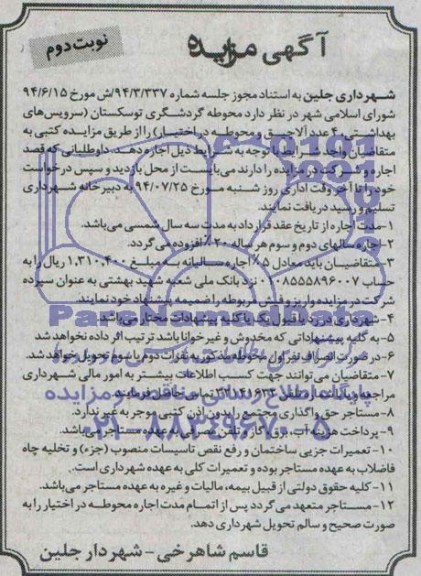 آگهی مزایده
نوبت دوم
شهرداری جلین به استناد مجوز جلسه شماره ۹۴/۳/۳۳۷/ش مورخ ۹۴/۶/۱۵
شورای اسلامی شهر در نظر دارد محوطه گردشگری توسکستان (سرویس‌های
بهداشتی، ۴ عدد آلاچیق و محوطه در اختیار) را از طریق مزایده کتبی به
متقاضیان واجد شرایط با توجه به شرایط ذیل اجاره دهد. داوطلبانی که قصد
اجاره و شرکت در مزایده را دارند می‌بایست از محل بازدید و سپس درخواست
خود را تا آخر وقت اداری روز شنبه مورخ ۹۴/۰۷/۲۵ به دبیرخانه شهرداری
تسلیم و رسید دریافت نمایند.
۱- مدت اجاره از تاریخ عقد قرارداد به مدت سه سال شمسی می‌باشد.
۲- اجاره سالهای دوم و سوم هر ساله ۲۰٪ افزوده می‌گردد.
۳- متقاضیان باید معادل ۵٪ اجاره سالیانه به مبلغ ۱,۳۱۰,۴۰۰ ریال را به
حساب ۰۱۰۸۵۵۵۸۹۶۰۰۷ نزد بانک ملی شعبه شهید بهشتی به عنوان سپرده
شرکت در مزایده واریز و فیش مربوطه را ضمیمه پیشنهاد خود نمایند.
۴- شهرداری در رد یا قبول یک یا کلیه پیشنهادات مختار می‌باشد.
۵- به کلیه پیشنهاداتی که مخدوش و یا خوانا نباشد ترتیب اثر داده نخواهد شد
۶- در صورت انصراف نفر اول محوطه مذکور به نفرات دوم یا سوم تحویل خواهد شد.
۷- متقاضیان می‌توانند جهت کسب اطلاعات بیشتر به امور مالی شهرداری
مراجعه و یا با شماره تلفن تماس حاصل فرمایند.
۸- مستاجر حق واگذاری مجتمع را بدون اذن کتبی موجر به غیر ندارد.
۹- پرداخت هزینه آب، برق، گاز و تلفن مصرفی به عهده مستاجر می‌باشد.
۱۰- تعمیرات جزیی ساختمان و رفع نقص تاسیسات منصوب (جزء) و تخلیه چاه
فاضلاب به عهده مستاجر بوده و تعمیرات کلی به عهده شهرداری است.
۱۱- کلیه حقوق دولتی از قبیل بیمه، مالیات و غیره به عهده مستاجر می‌باشد.
۱۲- مستاجر متعهد می‌گردد پس از اتمام مدت اجاره محوطه در اختیار را به
صورت صحیح و سالم تحویل شهرداری دهد.
قاسم شاهرخی - شهردار جلین
ParsNamadData
پایگاه اطلاع رسانی مناقصه و مزایده
۰۲۱-۸۸۳۴۹۶۷۰-۵